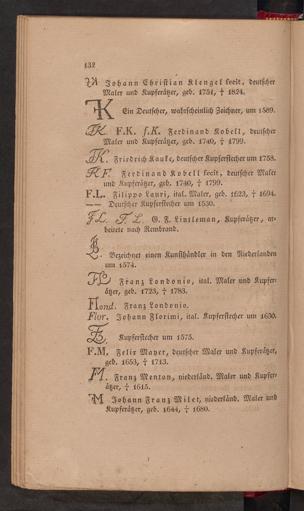 132
Johann Christian Klengel fecit, deutscher
Maler und Kupferätzer, geb. 1751, † 1824.
Ein Deutscher, wahrscheinlich Zeichner, um 1589.
FK. F.K. f.K. Ferdinand Kobell, deutscher
Maler und Kupferätzer, geb. 1740, † 1799.
FK. Friedrich Kauke, deutscher Kupferstecher um 1758.
K F. Ferdinand Kobell fecit, deutscher Maler
und Kupferätzer, geb. 1740, † 1799.
F.L. Filippo Lauri, ital. Maler, geb. 1623, † 1694.
—— Deutscher Kupferstecher um 1530.
F.L. F.L. G. F. Lintleman, Kupferätzer, ar-
beitete nach Rembrand.
Bezeichnet einen Kunsthändler in den Niederlanden
um 1574.
Franz Londonio, ital. Maler und Kupfer-
ätzer, geb. 1723, † 1783.
Flond. Franz Londonio.
Flor. Johann Florimi, ital. Kupferstecher um 1630.
Kupferstecher um 1575.
F.M. Felix Mayer, deutscher Maler und Kupferätzer,
geb. 1653, † 1713.
FM. Franz Menton, niederländ. Maler und Kupfer-
ätzer, † 1615.
FM Johann Franz Milet, niederländ. Maler und
Kupferätzer, geb. 1644, † 1680.